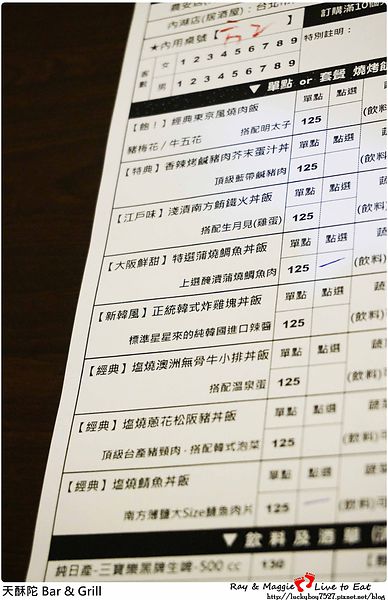 內湖店(居酒屋)：台北市
訂購滿10個
★內用桌號【五2】
特別註明：
客數 女 1 2 3 4 5 6 7 8 9
男 1 2 3 4 5 6 7 8 9
▼ 單點 or 套餐 燒烤飯
【飽！】經典東京風燒肉飯 單點 點選
豬梅花 / 牛五花 搭配明太子 125 (飲料)
【特典】香辣烤鹹豬肉芥末蛋汁丼 單點 點選 蔬
頂級藍帶鹹豬肉 125 (飲料)
【江戶味】淺漬南方鮪鐵火丼飯 單點 點選 蔬
搭配生月見(雞蛋) 125 (飲料)
【大阪鮮甜】特選蒲燒鯛魚丼飯 單點 點選 蔬
上選醃漬蒲燒鯛魚肉 125 (飲料)
【新韓風】正統韓式炸雞塊丼飯 單點 點選 蔬
標準星星來的純韓國進口辣醬 125 (飲料)
【經典】塩燒澳洲無骨牛小排丼飯 單點 點選 蔬
搭配溫泉蛋 125 (飲料)
【經典】塩燒蔥花松阪豬丼飯 單點 點選 蔬
頂級台產豬頸肉，搭配韓式泡菜 125 (飲料)
【經典】塩燒鯖魚丼飯 單點 點選 蔬
南方薄鹽大Size鯖魚肉片 125 (飲料)
▼ 飲料及酒單
純日產-三寶樂黑牌生啤-500 cc 130
天酥陀 Bar & Grill
Ray & Maggie Live to Eat
http://luckyboy7527.pixnet.net/blog